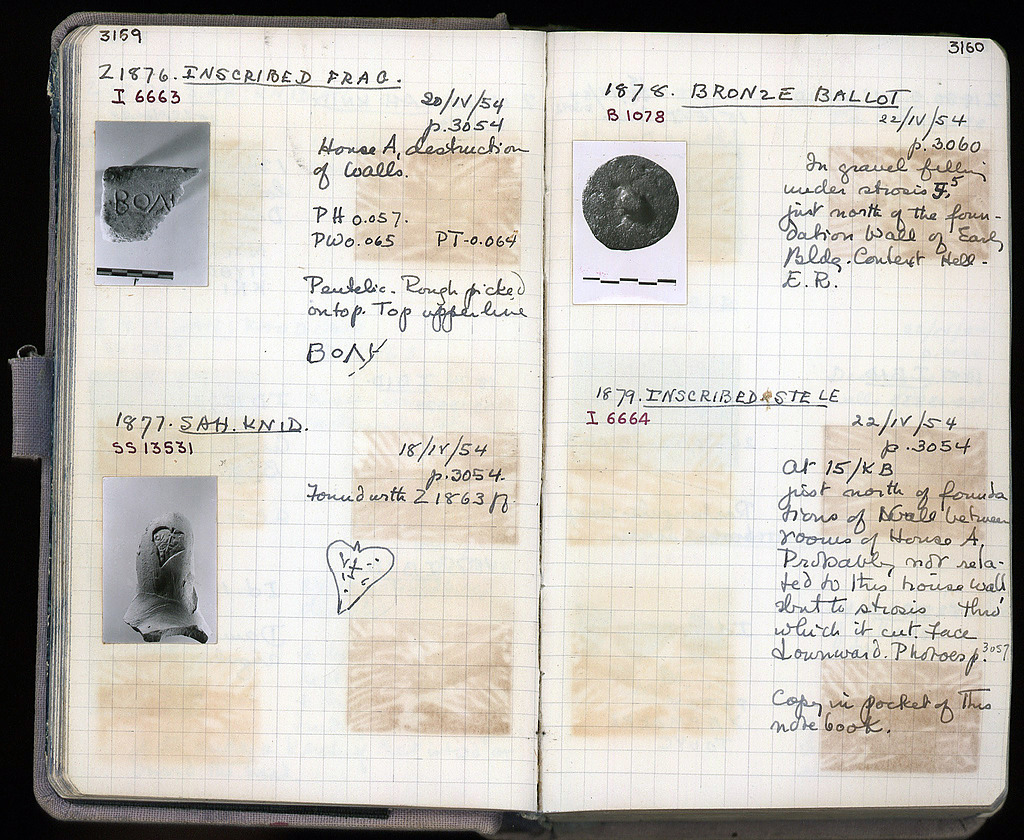 3159
Z1876. INSCRIBED FRAG.
I 6663
20/IV/54
p.3054
House A, destruction
of walls.
PH 0.057.
PW 0.065 PT-0.064
Pentelic. Rough picked
on top. Top upper line
ΒΟΛ
ΒΟΛ
1877. SAH. KNID.
SS 13531
18/IV/54
p.3054.
Found with Z 1863
3160
1878. BRONZE BALLOT
B 1078
22/IV/54
p.3060
In gravel filling
under strosis 5,
just north of the foun-
dation wall of Early
Bldg. Context Hell-
E.R.
1879. INSCRIBED STELE
I 6664
22/IV/54
p.3054
At 15/KB
just north of founda
tions of Wall between
rooms of House A,
Probably not rela-
ted to this house wall
but to strosis thro'
which it cut. Face
downward. Photoes p.3057
Copy in pocket of this
note book.